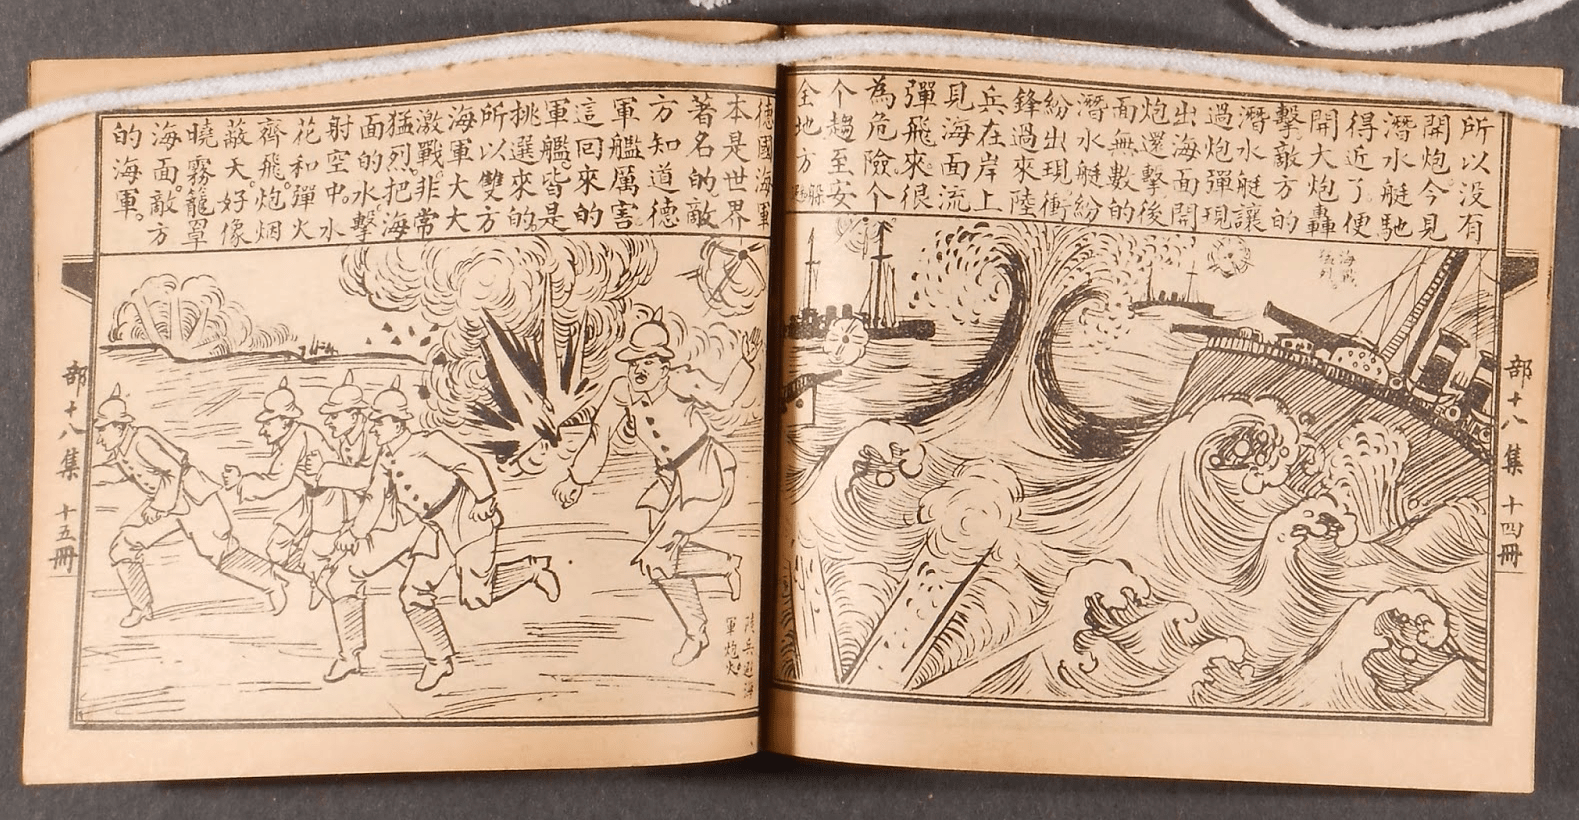 所以没有
開炮。今見
潛水艇馳
得近了。便
開大炮轟
擊敵方的
潛水艇讓
過炮彈現
出海面開
炮還擊後
面無數的
潛水艇紛
紛出現衝
鋒過來陸
兵在岸上
見海面流
彈飛來。很
為危險个
个趨至安
全地方躲
海戰
烈。
部十八集 十四冊
德國海軍
本是世界
著名的敵
方知道德
軍艦厲害
這回來的
軍艦。皆是
挑選來的。
所以雙方
海軍大大
激戰。非常
猛烈。把海
面的水擊
射空中。水
花和彈火
齊飛。炮烟
蔽天。好像
曉霧籠罩
海面。敵方
的海軍。
陸兵避海
軍炮火
部十八集 十五冊